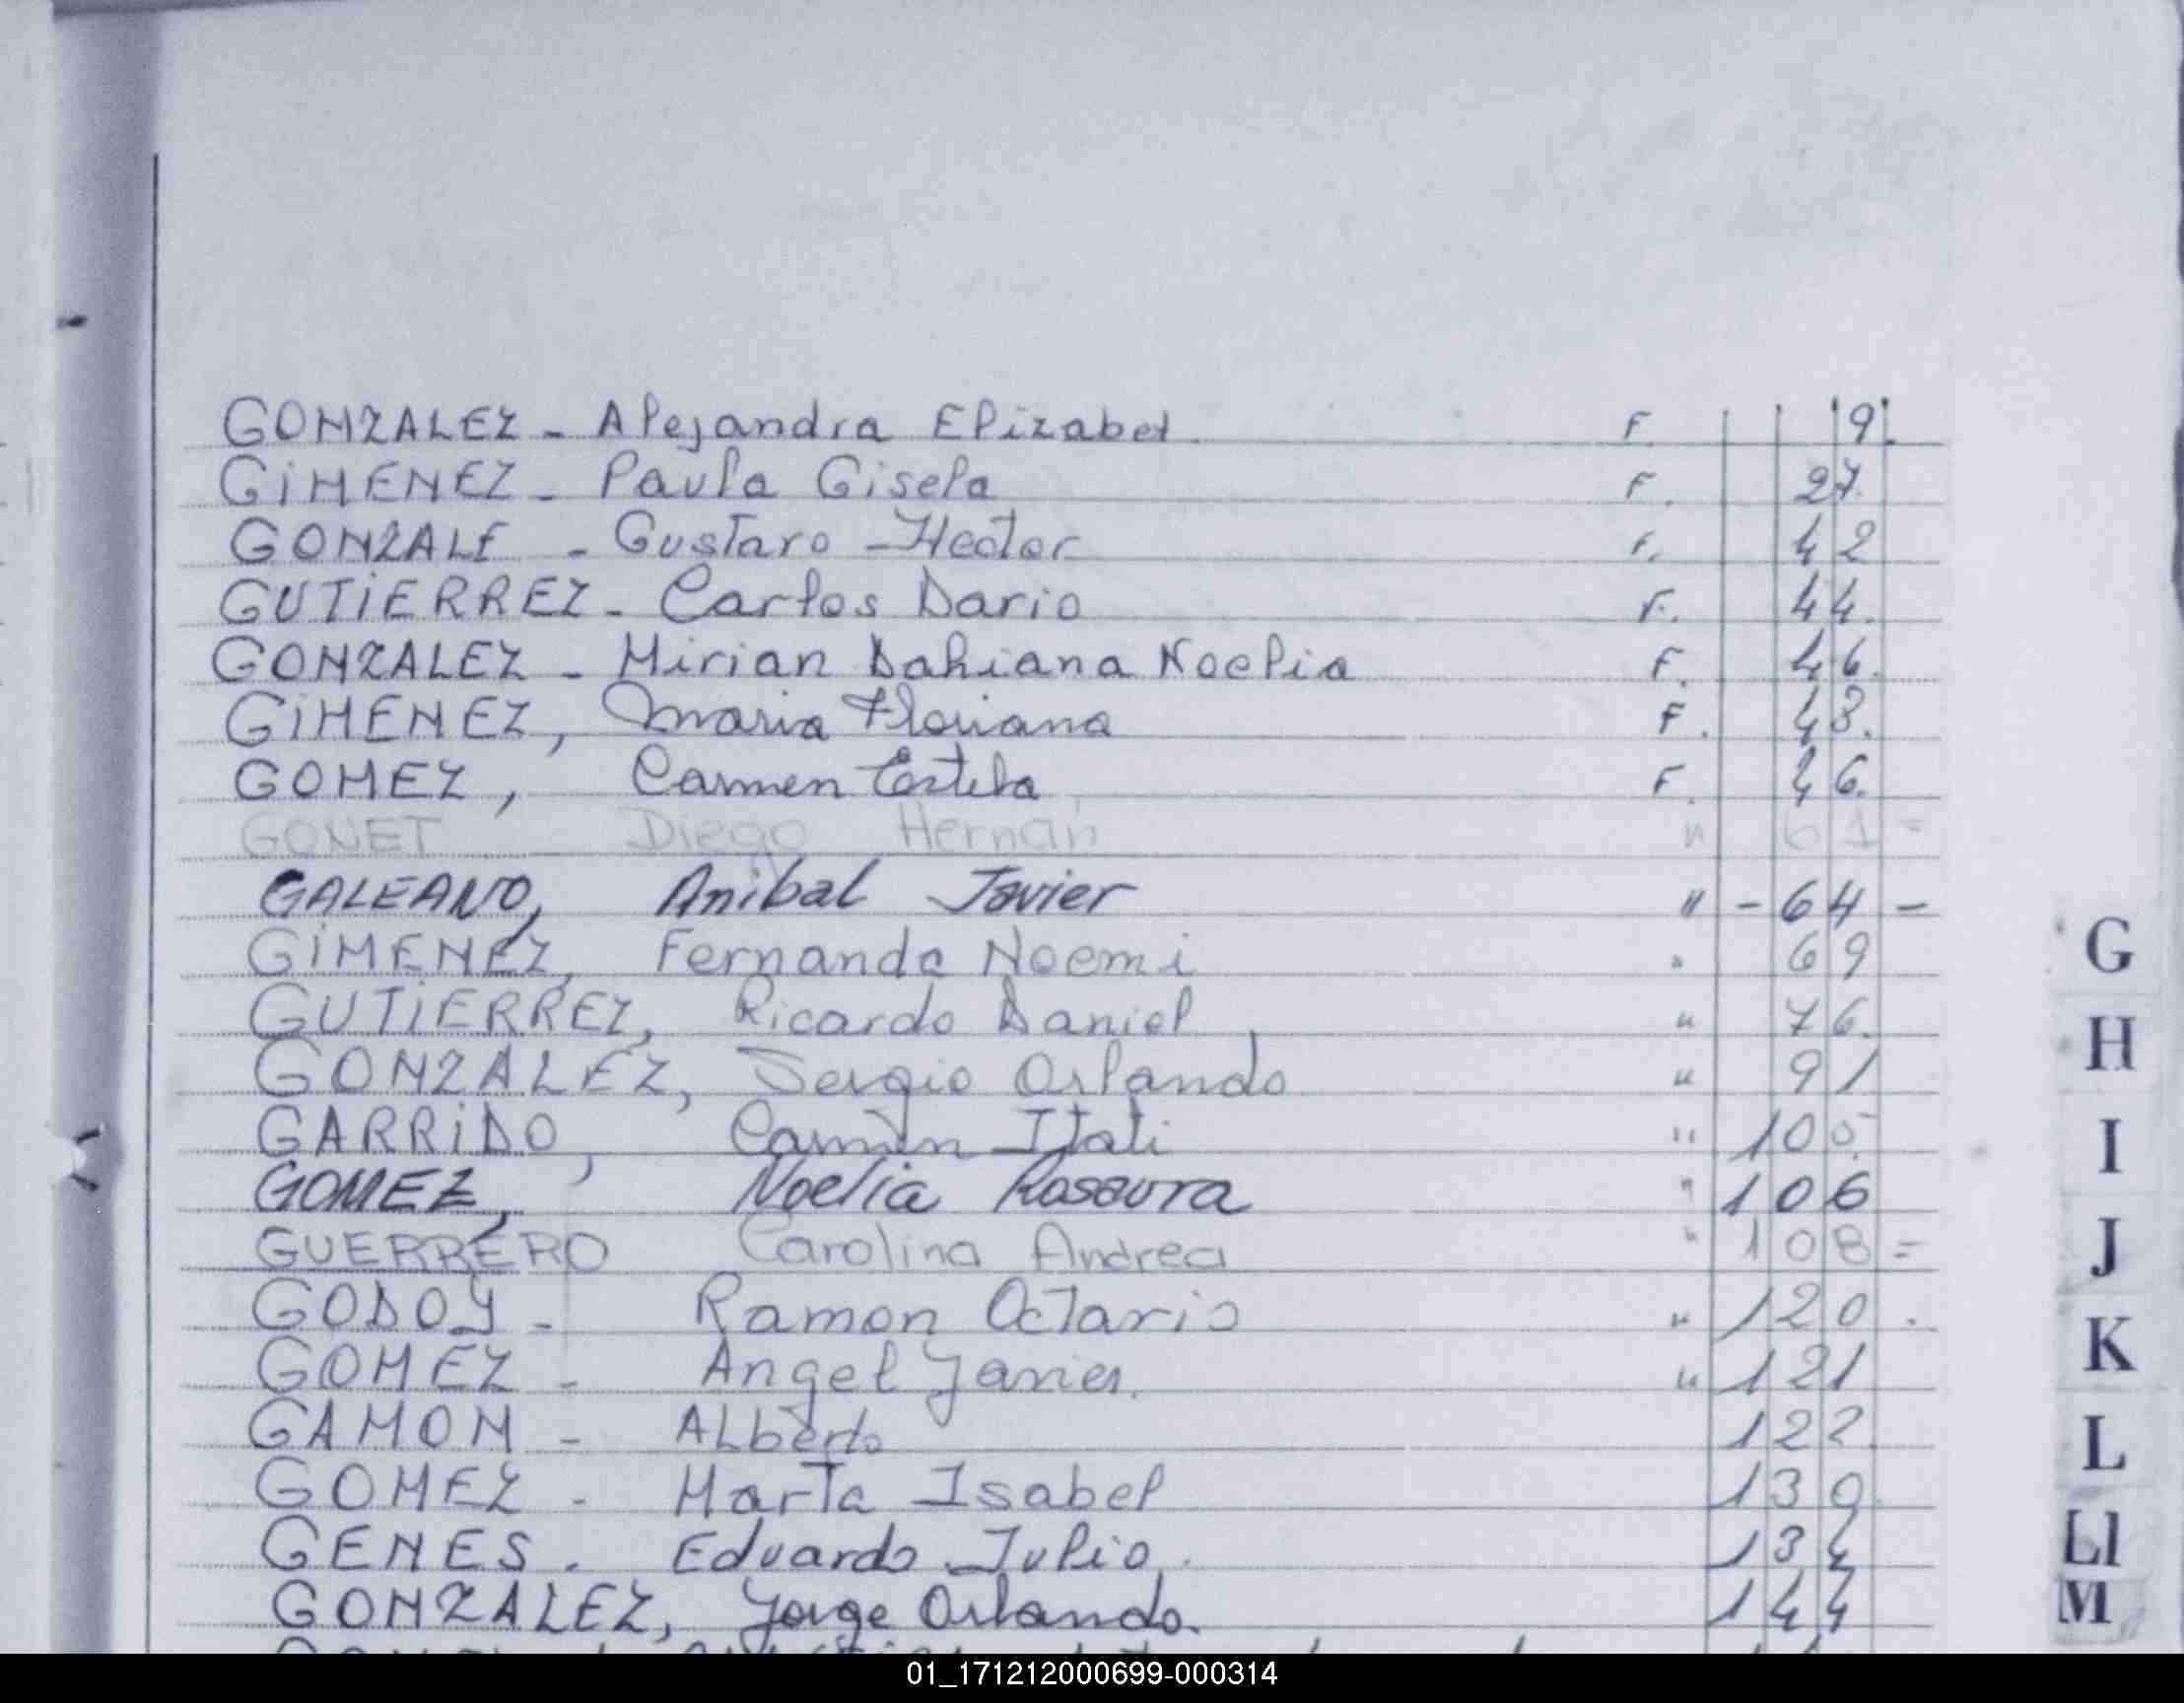 GONZALEZ - Alejandra Elizabet F. 9.
GiMENEZ - Paula Gisela F. 27.
GONZALE - Gustavo - Hector F. 42
GUTiERREZ - Carlos Dario F. 44.
GONZALEZ - Mirian Dahiana Noelia F. 46.
GiMENEZ, Maria Floriana F. 43.
GOMEZ, Carmen Estela F. 46.
GONET Diego Hernan " 61 =
GALEANO, Anibal Javier " - 64 -
GiMENEZ, Fernanda Noemi " 69
GUTiERREZ, Ricardo Daniel " 76.
GONZALEZ, Sergio Orlando " 91
GARRiDO, Itati " 105.
GOMEZ, Noelia Rosaura " 106
GUERRERO Carolina Andrea " 108 =
GODOY - Ramon Octavio " 120.
GOMEZ - Angel Javier. " 121
GAMON - ALberto 122
GOMEZ - Marta Isabel 130.
GENES. Eduardo Julio. 134
GONZALEZ, Jorge Orlando. 144
G
H
I
J
K
L
Ll
M
01_171212000699-000314